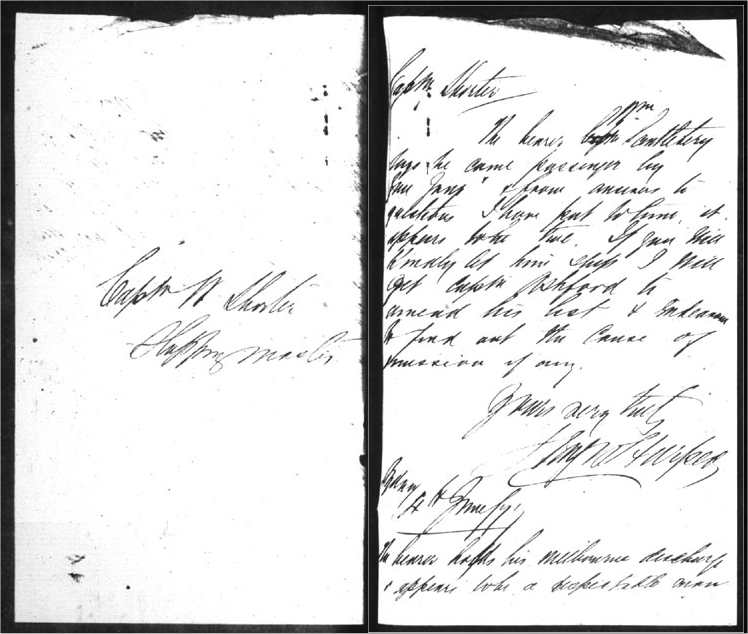 Captn W Shorter
Shipping Master
Captn Shorter
The bearer
says he came passenger by
& from answers to
questions I have put to him, it
appears to be true. If you will
kindly let him ship I will
get Captn to
amend his list & endeavour
to find out the cause of
omission if any.
Yours very truly
Sydney
4th June
The bearer holds his Melbourne discharge
& appears to be a respectable man